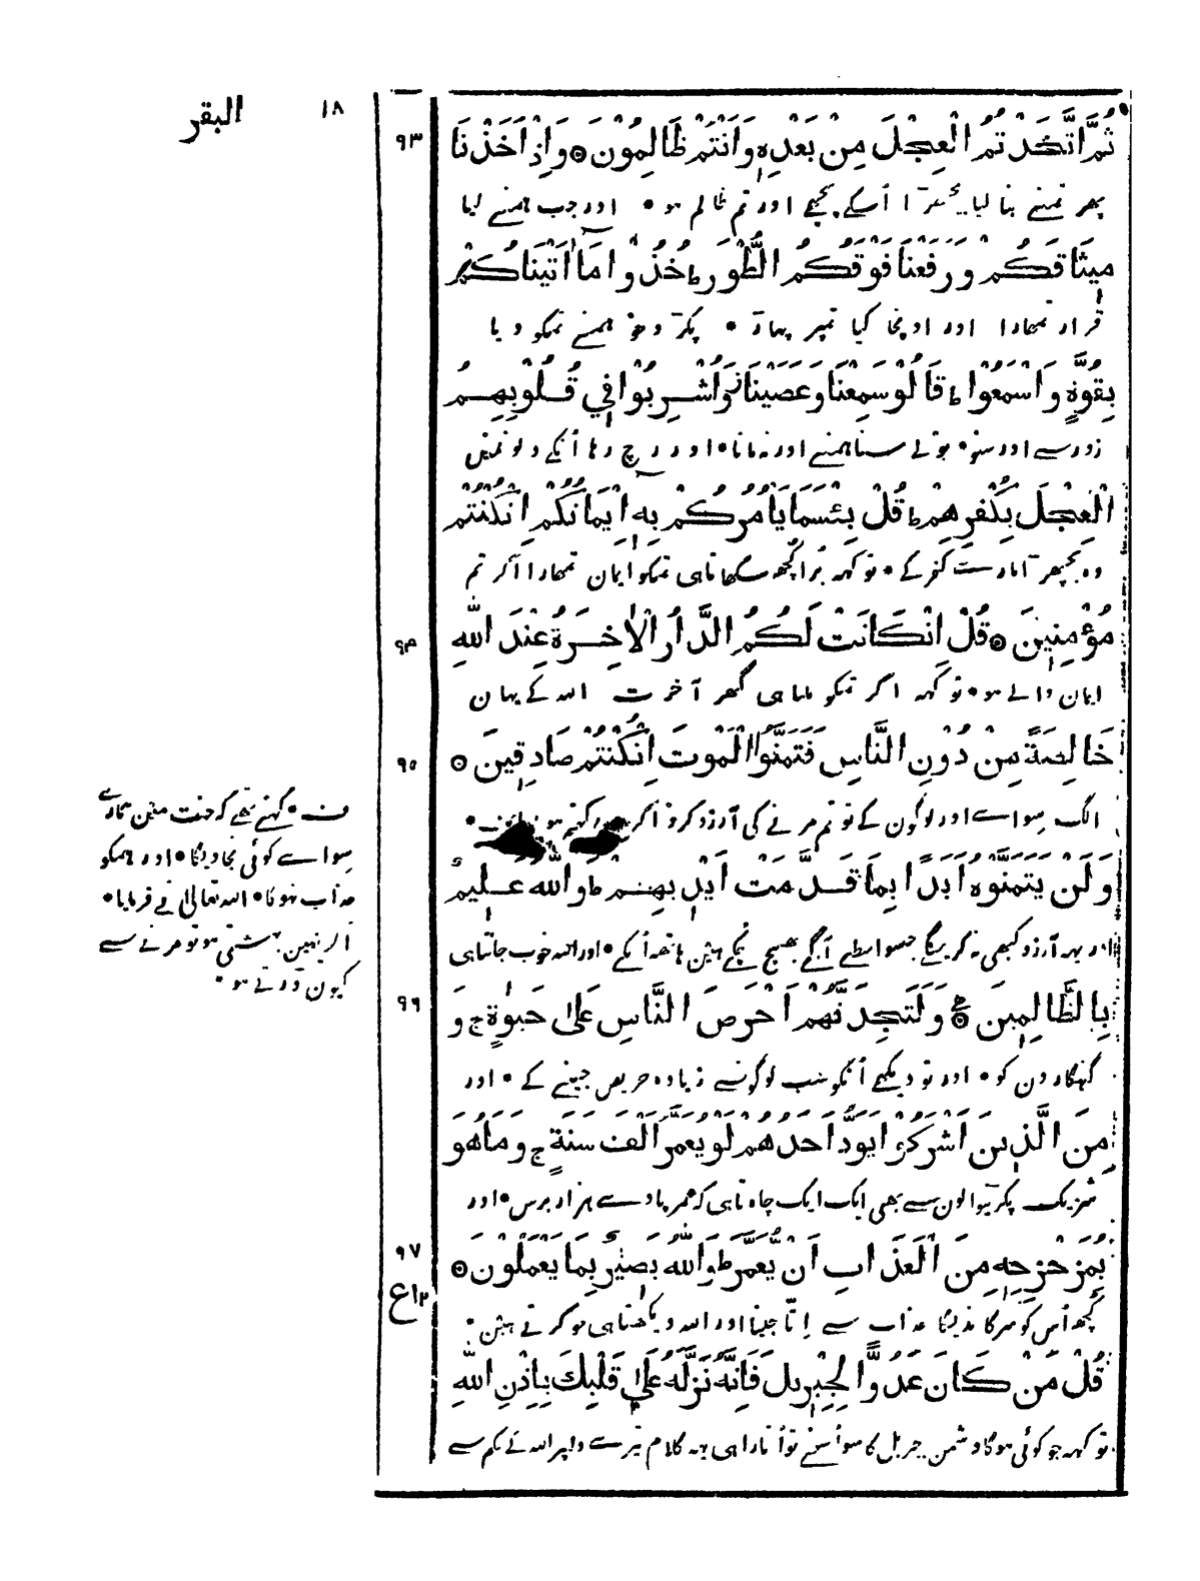 البقر
١٨
٩٣
ثُمَّ اتَّخَذْتُمُ الْعِجْلَ مِنْ بَعْدِهٖ وَاَنْتُمْ ظَالِمُوْنَ ۞ وَاِذْ اَخَذْنَا
پهر تمنے بنا ليا بچهڑا اُسكے پيچهے اور تم ظالم هو • اور جب همنے ليا
مِيْثَاقَكُمْ وَرَفَعْنَا فَوْقَكُمُ الطُّوْرَ ط خُذُوْا مَا اٰتَيْنَاكُمْ
قرار تمهارا اور اونچا كيا تمپر پهاڑ • پكڑو جو همنے تمكو ديا
بِقُوَّةٍ وَاسْمَعُوْا ط قَالُوْ سَمِعْنَا وَعَصَيْنَا وَاُشْرِبُوْا فِي قُلُوْبِهِمُ
زور سے اور سنو • بولے سنا همنے اور نه مانا • اور رچ رها اُنكے دلونمين
الْعِجْلَ بِكُفْرِهِمْ ط قُلْ بِئْسَمَا يَاْمُرُكُمْ بِهٖ اِيْمَانُكُمْ اِنْ كُنْتُمْ
وه بچهڑا مارے كفر كے • تو كهه بُرا كچهه سكهاتا هى تمكو ايمان تمهارا اگر تم
٩٤
مُؤْمِنِيْنَ ۞ قُلْ اِنْ كَانَتْ لَكُمُ الدَّارُ الْاٰخِرَةُ عِنْدَ اللّٰهِ
ايمان والے هو • تو كهه اگر تمكو ملنا هى گهر آخرت الله كے يهان
٩٥
خَالِصَةً مِنْ دُوْنِ النَّاسِ فَتَمَنَّوُا الْمَوْتَ اِنْ كُنْتُمْ صَادِقِيْنَ ۞
الگ سواے اور لوگون كے تو تم مرنے كى آرزو كرو اگر
وَلَنْ يَتَمَنَّوْهُ اَبَدًا بِمَا قَدَّمَتْ اَيْدِيْهِمْ ط وَاللّٰهُ عَلِيْمٌ
اور يهه آرزو كبهى نه كرينگے جسواسطے آگے بهيج چكے هين هاتهه اُنكے • اور الله خوب جانتا هى
٩٦
بِالظَّالِمِيْنَ ۞ وَلَتَجِدَنَّهُمْ اَحْرَصَ النَّاسِ عَلٰى حَيٰوةٍ ج وَ
گنهگارون كو • اور تو ديكهے اُنكو سب لوگونسے زياده حريص جينے كے • اور
مِنَ الَّذِيْنَ اَشْرَكُوْا يَوَدُّ اَحَدُهُمْ لَوْ يُعَمَّرُ اَلْفَ سَنَةٍ ج وَمَا هُوَ
شريك پكڑنيوالون سے بهى ايك ايك چاهتا هى كه عمر پاوے هزار برس • اور
٩٧
بِمُزَحْزِحِهٖ مِنَ الْعَذَابِ اَنْ يُّعَمَّرَ ط وَاللّٰهُ بَصِيْرٌ بِمَا يَعْمَلُوْنَ ۞
ع
كچهه اُس كو سركا نديگا عذاب سے اِتنا جينا اور الله ديكهتا هى جو كرتے هين •
قُلْ مَنْ كَانَ عَدُوًّا لِّجِبْرِيْلَ فَاِنَّهٗ نَزَّلَهٗ عَلٰى قَلْبِكَ بِاِذْنِ اللّٰهِ
تو كهه جو كوئى هوگا دشمن جبريل كا سو اُسنے تو اُتارا هى يهه كلام تيرے دلپر الله كے حكم سے
ف • كهتے تهے كه جنت مين همارے
سواے كوئى نجاويگا • اور همكو
عذاب نهوگا • الله تعالىٰ نے فرمايا •
اگر يقين بهشتى هو تو مرنے سے
كيون ڈرتے هو •